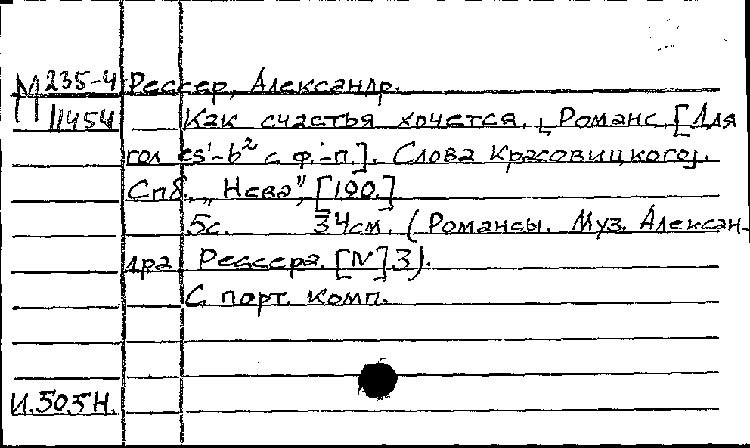 М 235-4 Рессер, Александр.
11454 Как счастья хочется. Романс [Для
гол. es'-b² с ф.-п.]. Слова Красовицкого.
Спб. „Нева", [190.]
5с. 34см. (Романсы. Муз. Алексан-
дра Рессера. [N] 3).
С порт. комп.
И.505Н.